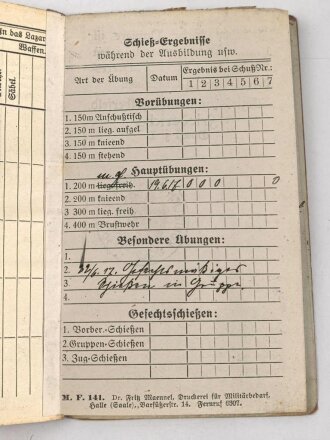 in das Lazar
Waffen.
Säbel.
Schieß-Ergebnisse
während der Ausbildung usw.
Art der Übung Datum Ergebnis bei Schuß Nr.:
1 2 3 4 5 6 7
Vorübungen:
1. 150 m Anschußtisch
2. 150 m lieg. aufgel
3. 150 m knieend
4. 150 m stehend
Hauptübungen:
m. G
1. 200 m lieg. freih. 0 0 0 0
2. 200 m knieend
3. 300 m lieg. freih
4. 400 m Brustwehr
Besondere Übungen:
1.
2. Gefechtsmäßiges
3. Schießen in Gruppe.
4.
Gefechtschießen:
1. Vorber.-Schießen
2. Gruppen-Schießen
3. Zug-Schießen
M. F. 141. Dr. Fritz Maennel, Druckerei für Militärbedarf.
Halle (Saale), Barfüßerstr. 14. Fernruf 6307.